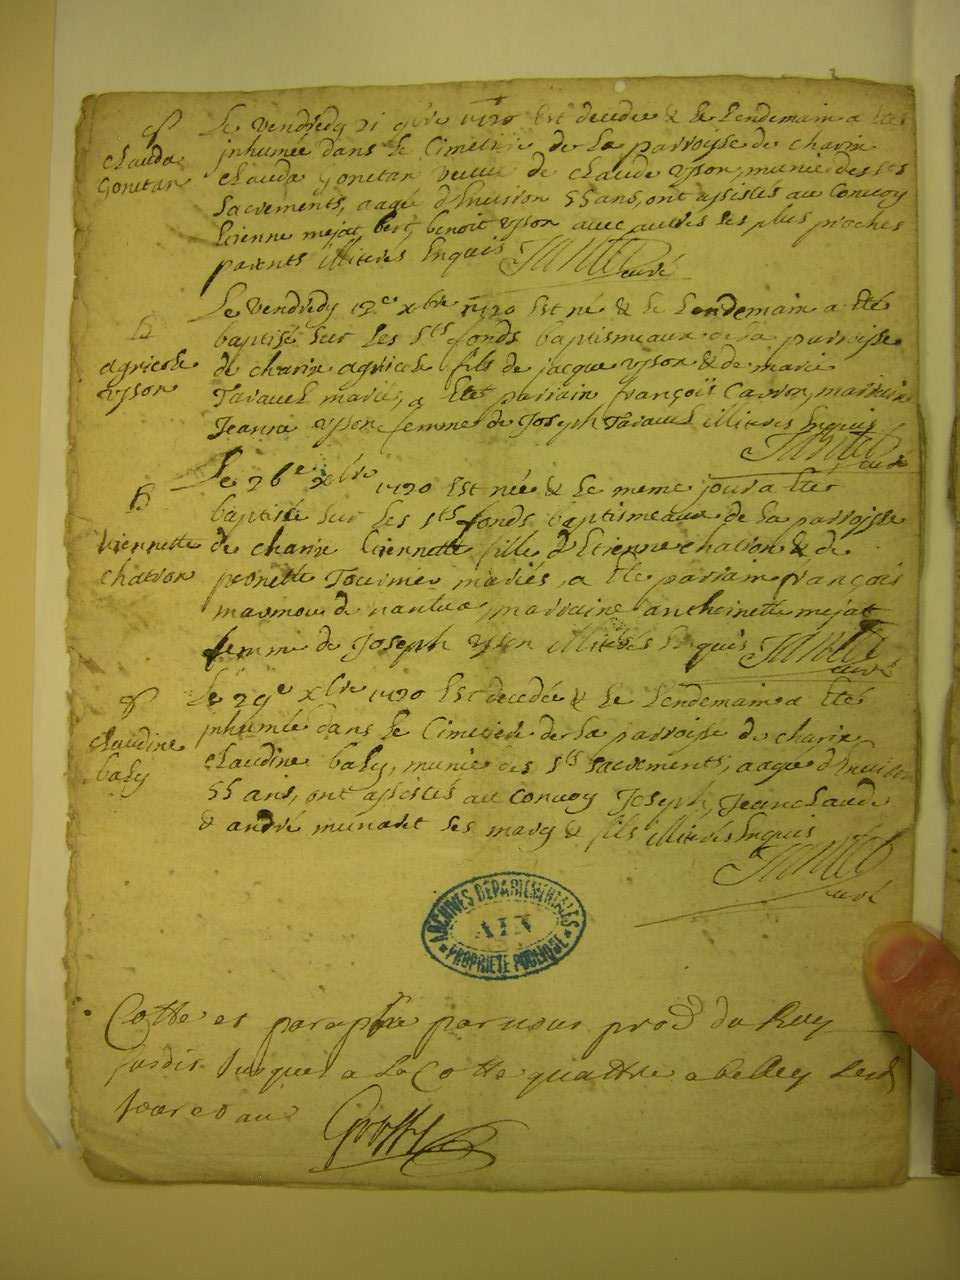 S
Clauda
Gonetan
Le vendredy 21 9bre 1720 Est decedée & le Lendemain a Eté
jnhumée dans le Cimetiere de La parroisse de charix
Clauda Gonetan veuve de Claude ysson, munie des sts
Sacrements, aagé d'Environ 55 ans, ont assistés au Convoy
Etienne mejat benoit ysson avec autres ses plus proches
parents illiterés Enquis
curé
B
agricole
ysson
Le vendredy 12e xbre 1720 Est né & le Lendemain a Eté
baptisé sur Les Sts fonds baptismeaux de La parroisse
de charix agricole fils de jacque ysson & de marie
Taravel mariés, a Eté parrain françois Carron, marraine
Jeanne ysson femme de Joseph Taravel illiterés Enquis
curé
B
tiennette
chatron
Le 26e xbre 1720 Est née & Le meme jour a Eté
baptisée sur Les Sts fonds baptismeaux de La parroisse
de charix tiennette fille d'Etienne chatron & de
peronette Tournier mariés, a Eté parrain françois
de nantua, marraine anthoinette mejat
femme de Joseph ysson illiterés Enquis
curé
S
claudine
baly
Le 29e xbre 1720 Est decedée & Le Lendemain a Eté
jnhumée dans Le Cimetiere de La parroisse de charix
claudine baly, munie des Sts sacrements, aagée d'Environ
55 ans, ont assistés au Convoy Joseph, Jeanclaude
& andré munaret ses mary & fils illiterés Enquis
curé
ARCHIVES DEPARTEMENTALES
AIN
PROPRIETE PUBLIQUE
Cotte et paraphé par nous du Roy
jusques a La Cotte quattre a belley